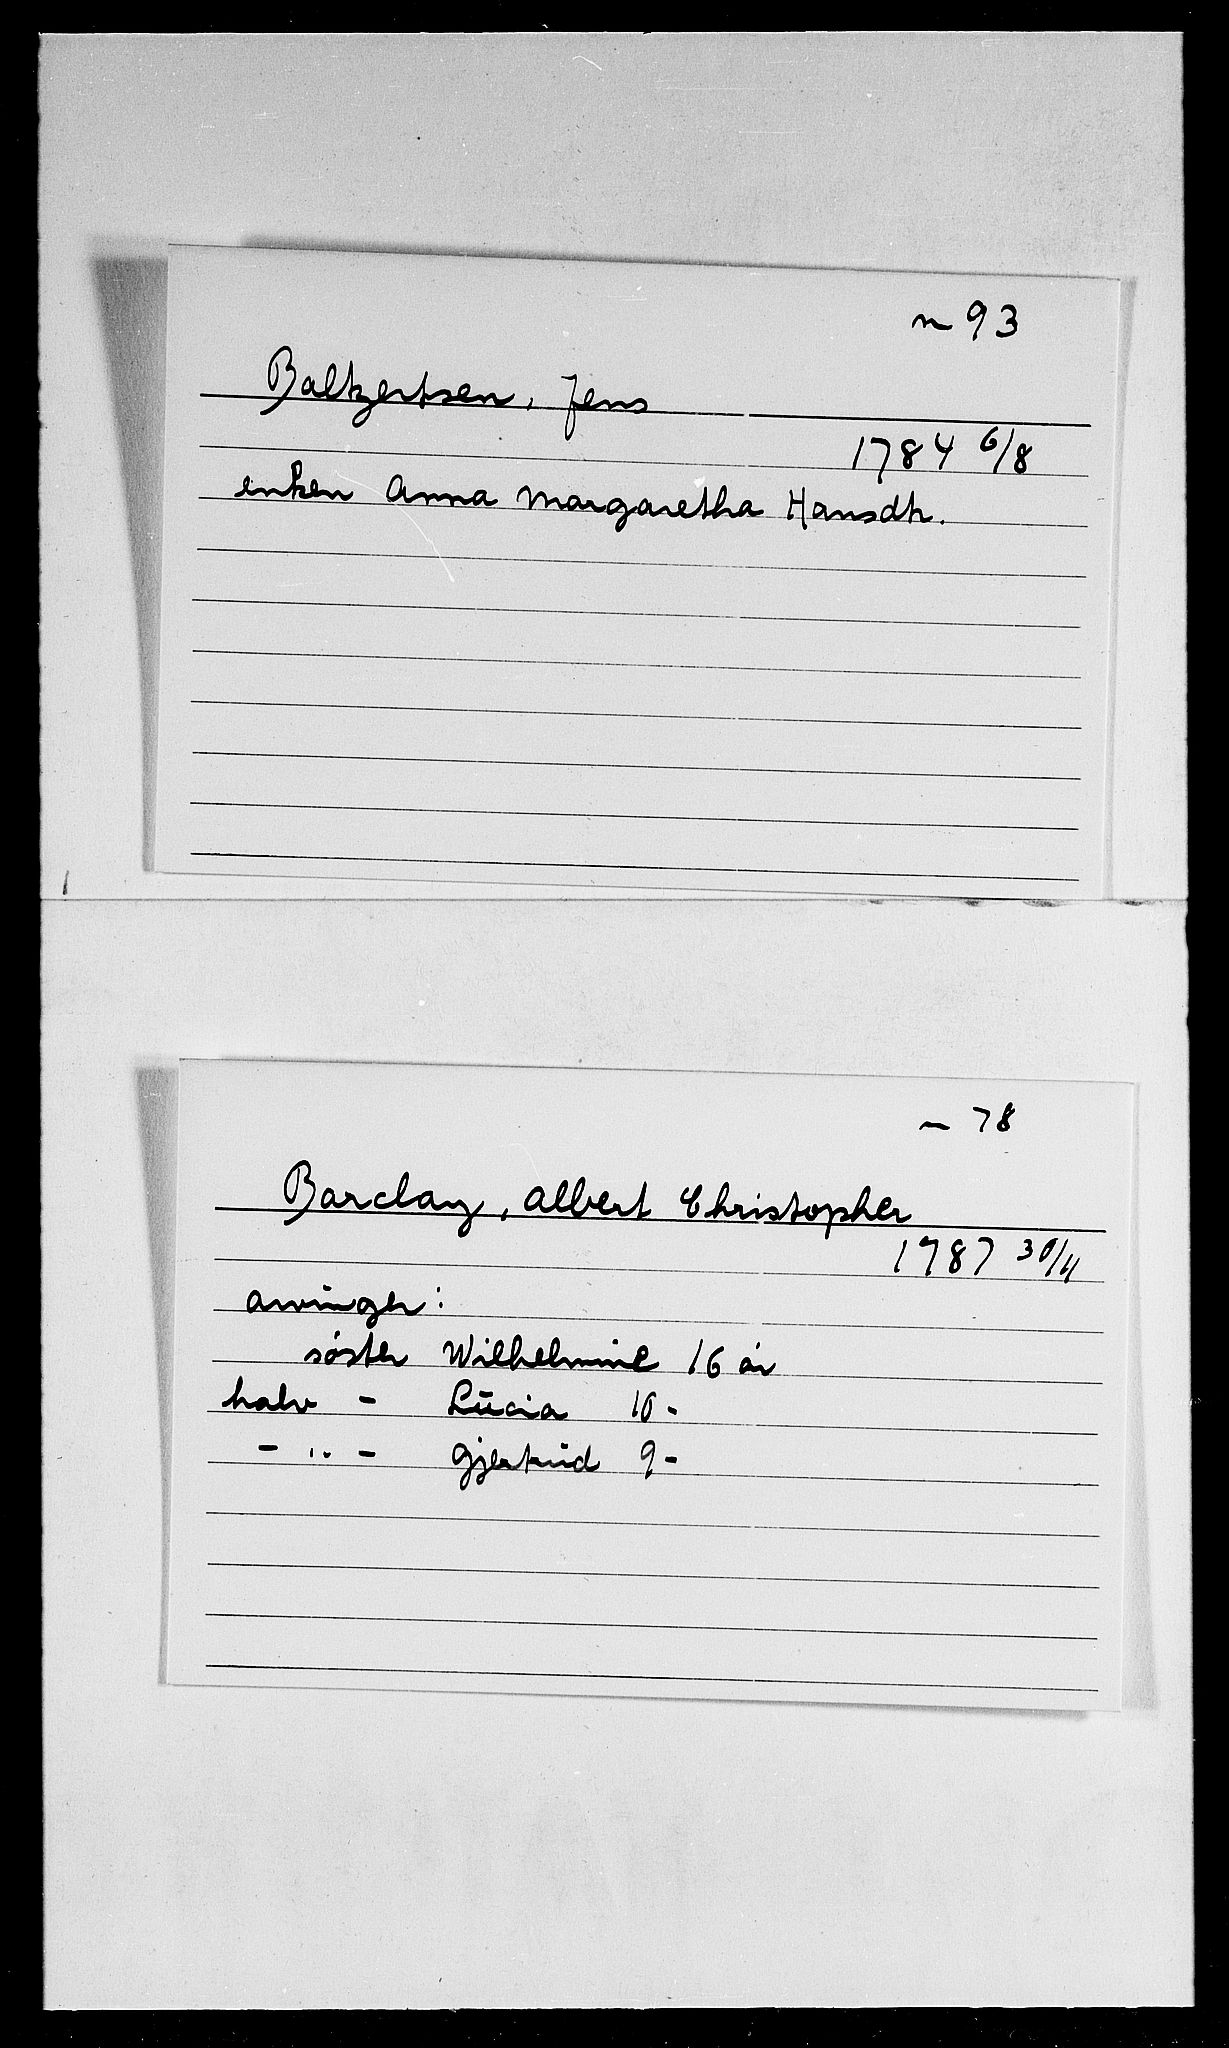 n 93
Baltzertsen, Jens
1784 6/8
enken Anna Margaretha Hansdtr.
~ 78
Barclay, Albert Christopher
1787 30/4
arvinger:
søster Wilhelmine 16 år
halv - Lucia 10 -
- " - Gjertrud 9 -